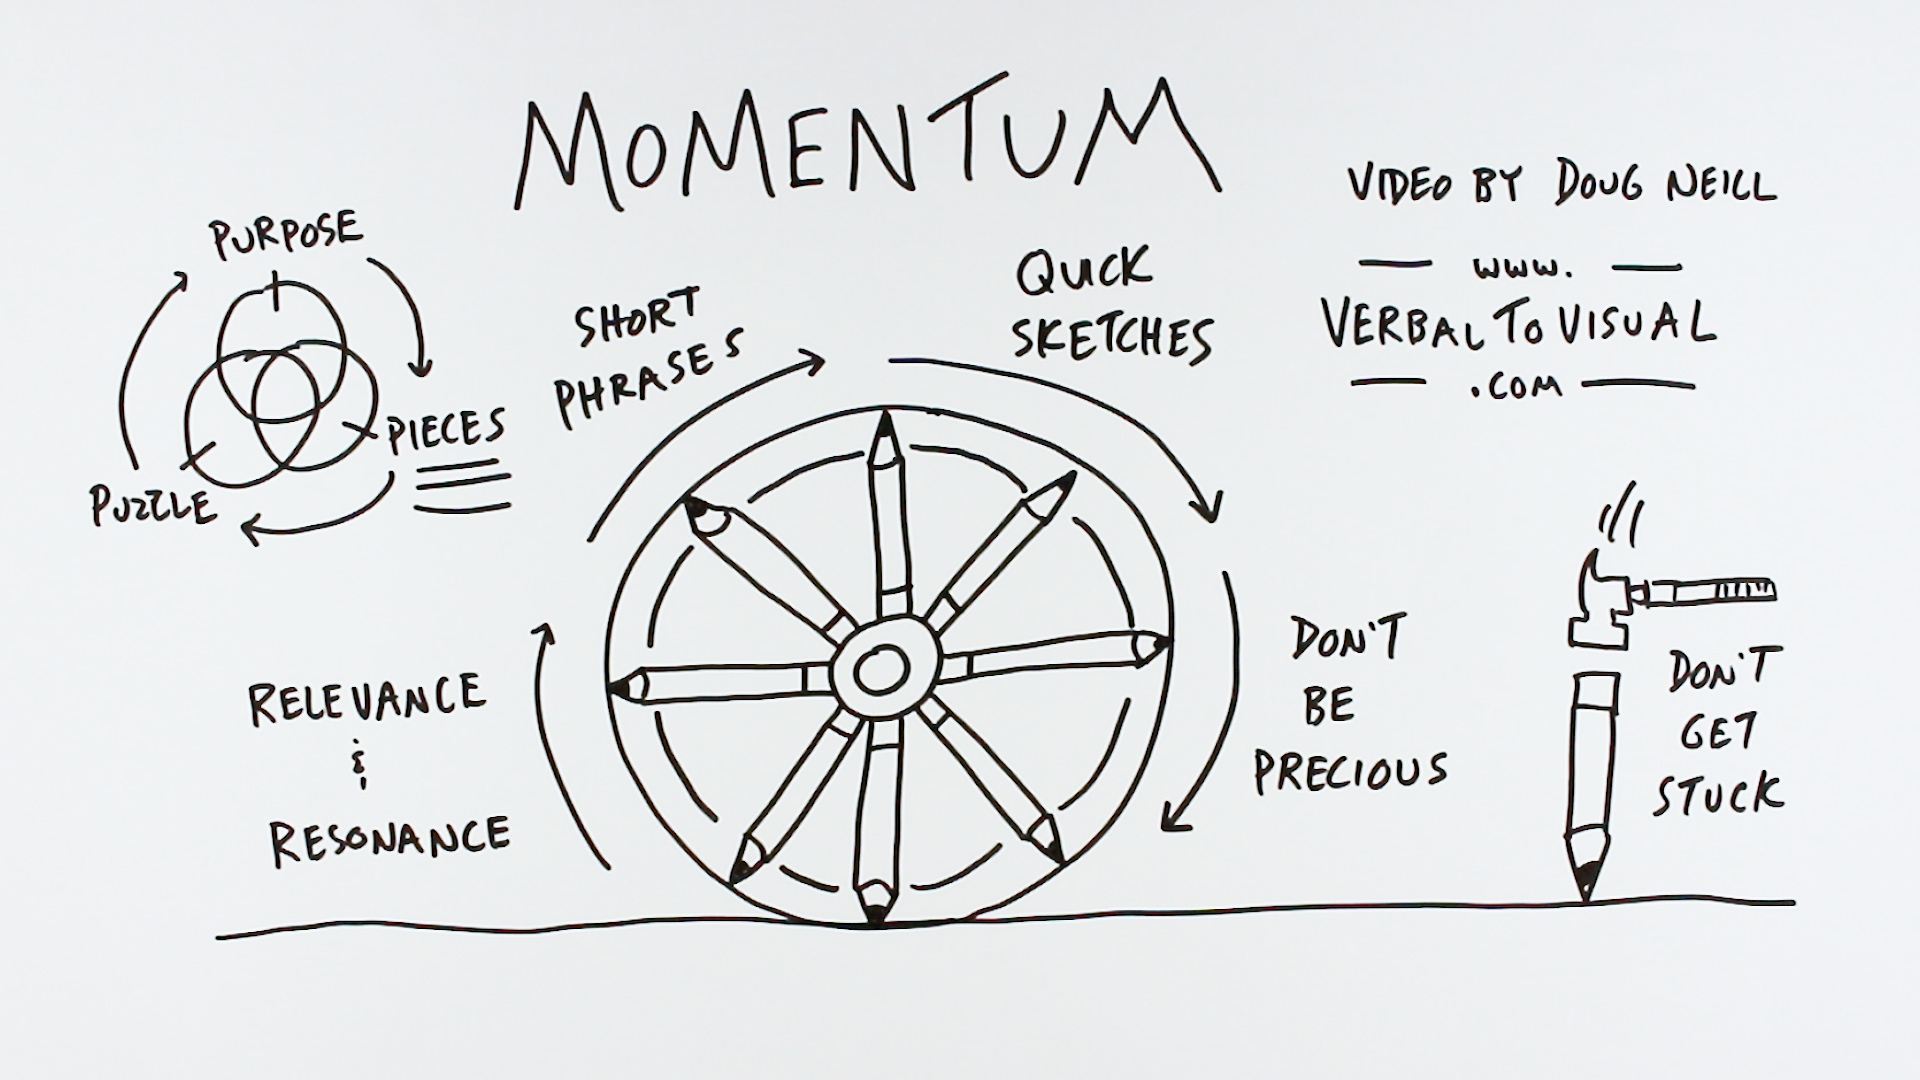 MOMENTUM
PURPOSE
PIECES
PUZZLE
SHORT
PHRASES
QUICK
SKETCHES
VIDEO BY DOUG NEILL
www.
VERBALTOVISUAL
.COM
RELEVANCE
&
RESONANCE
DON'T
BE
PRECIOUS
DON'T
GET
STUCK